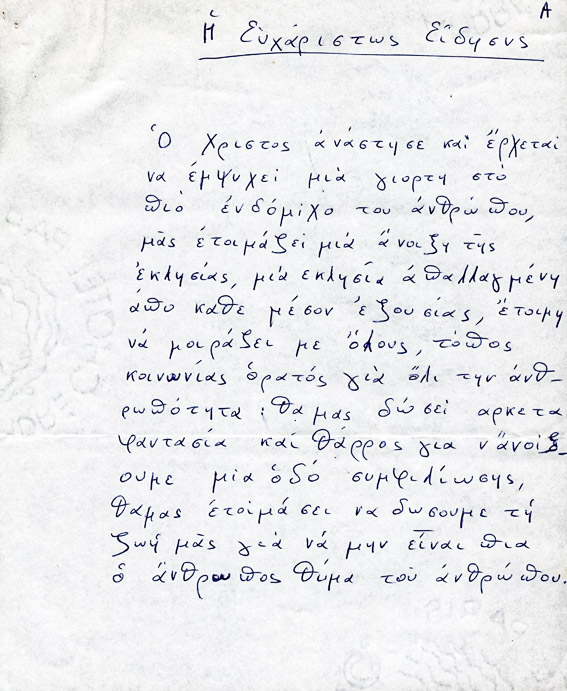 Α
Ἡ Εὐχάριστως Εἴδησυς
Ὁ Χριστος ἀνάστησε καὶ ἔρχεται
να ἐμψυχεί μιὰ γιορτη στὸ
πιὸ ἐνδόμιχο του ἀνθρώπου,
μᾶς ἑτοιμάζει μιὰ ἄνοιξη τῆς
ἐκλησίας, μιὰ εκλησία ἀπαλλαγμένη
ἀπο καθε μέσον ἐξουσίας, ἕτοιμη
νά μοιράζει με ὅλους, τόπος
κοινωνίας ὁρατός γιὰ ὅλι την ἀνθ-
ρωπότητα : θα μας δώσει αρκετα
φαντασία καὶ θάρρος για ν'ἄνοιξ-
ουμε μία ὁδό συμφιλίωσης,
θαμας ἑτοιμάσει να δωσουμε τή
ζωή μᾶς γιὰ νά μην εἶναι πια
ὁ ἄνθρωπος θύμα τοῦ ἀνθρώπου.